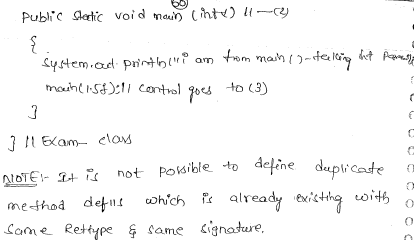 60
public static void main (int x) // —(2)
{
System.out.println("i am from main()-taking int
main(1.5f); // control goes to (3)
}
} // Exam class
NOTE:- It is not possible to define duplicate
method defns which is already existing with
same Rettype & same signature.